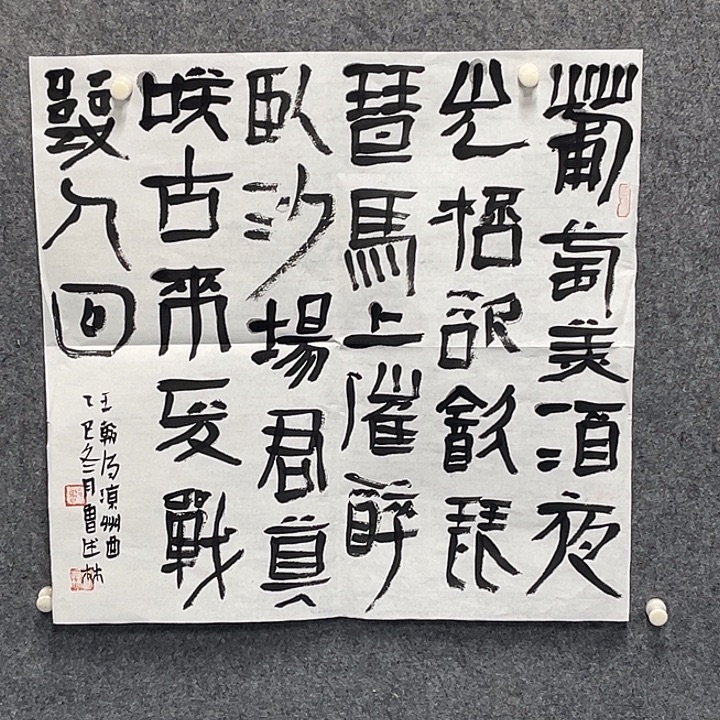 葡萄美酒夜
光桮欲飲琵
琶馬上催醉
臥沙場君莫
咲古來征戰
幾人回
王翰涼州曲
乙巳冬月曹林